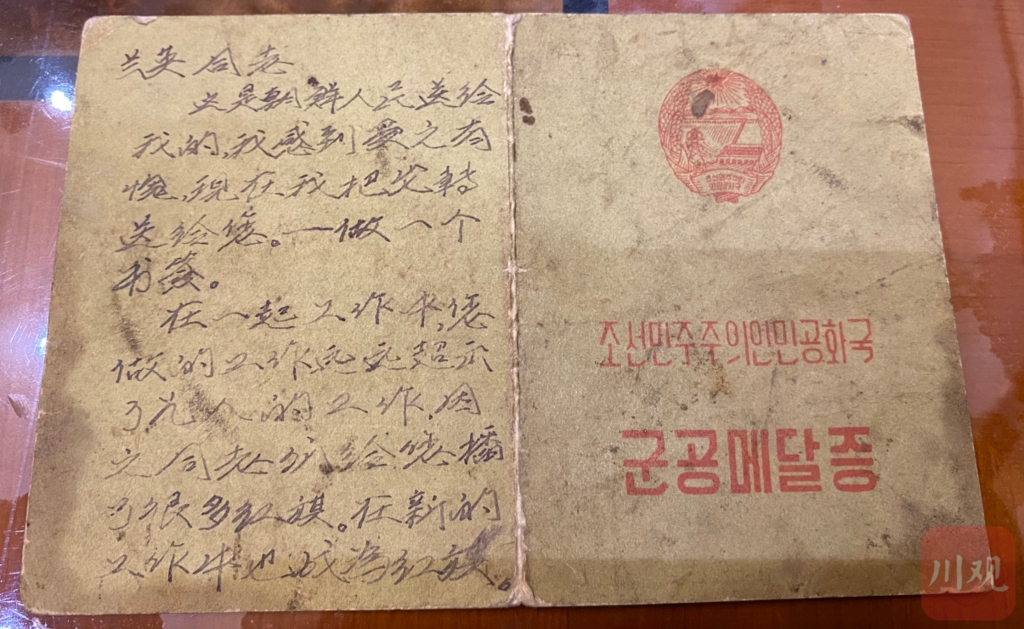 兰英同志
这是朝鲜人民送给
我的,我感到受之有
愧,现在我把它转
送给您。一做一个
书签。
在一起工作中,您
做的工作远远超示
了凡人的工作,因
之同志们给您插
了很多红旗。在新的
工作中也成为红旗。
조선민주주의인민공화국
군공메달증
川观